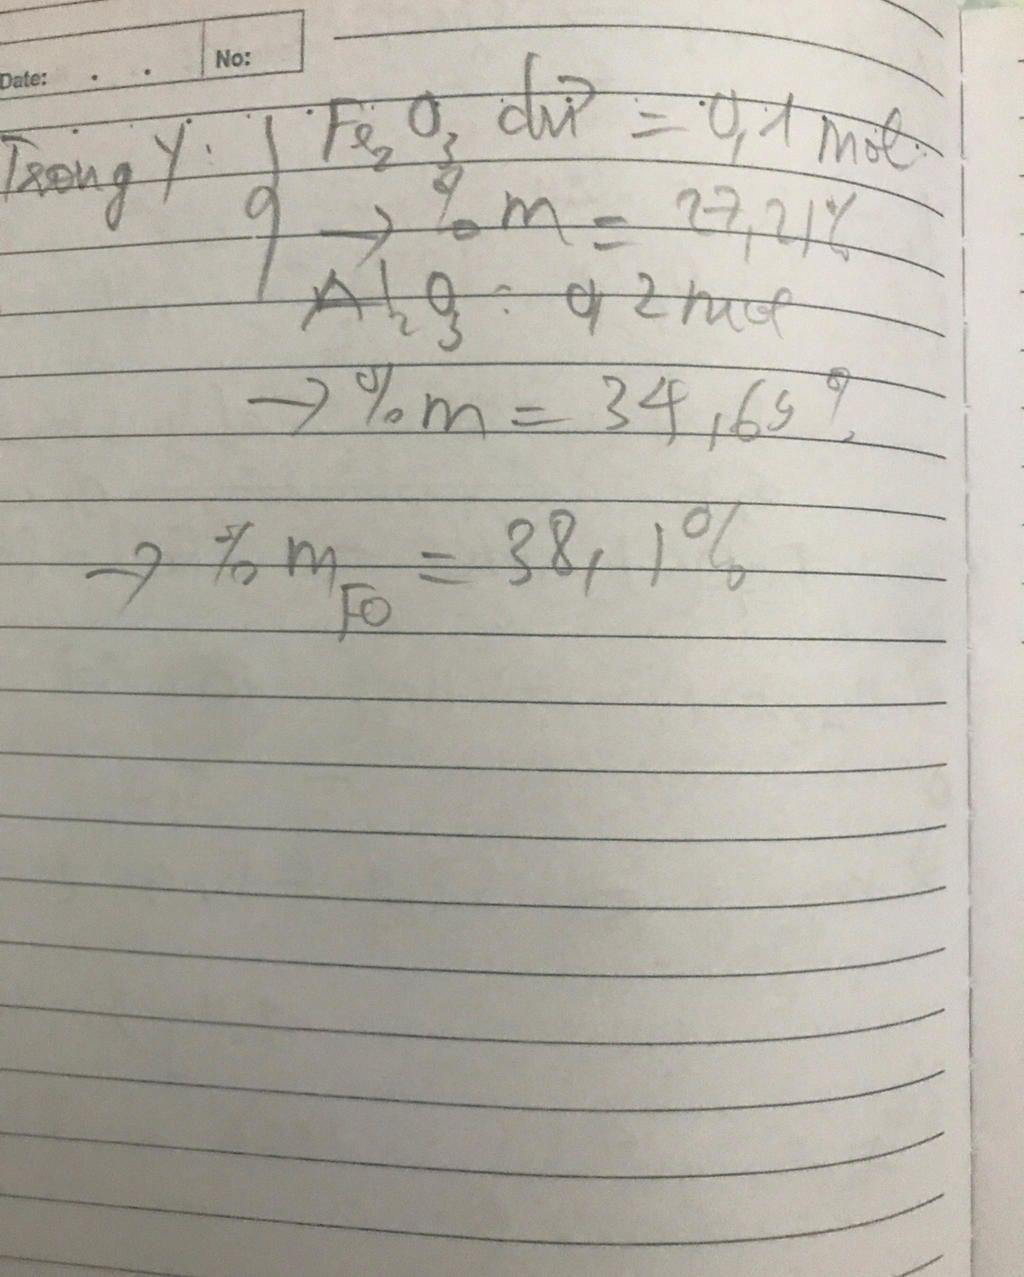 Date: . . No:
Trong Y: { Fe₂O₃ dư = 0,1 mol
→ % m = 27,21%
Al₂O₃ : 0,2 mol
→ % m = 34,69%
→ % m Fe = 38,1%